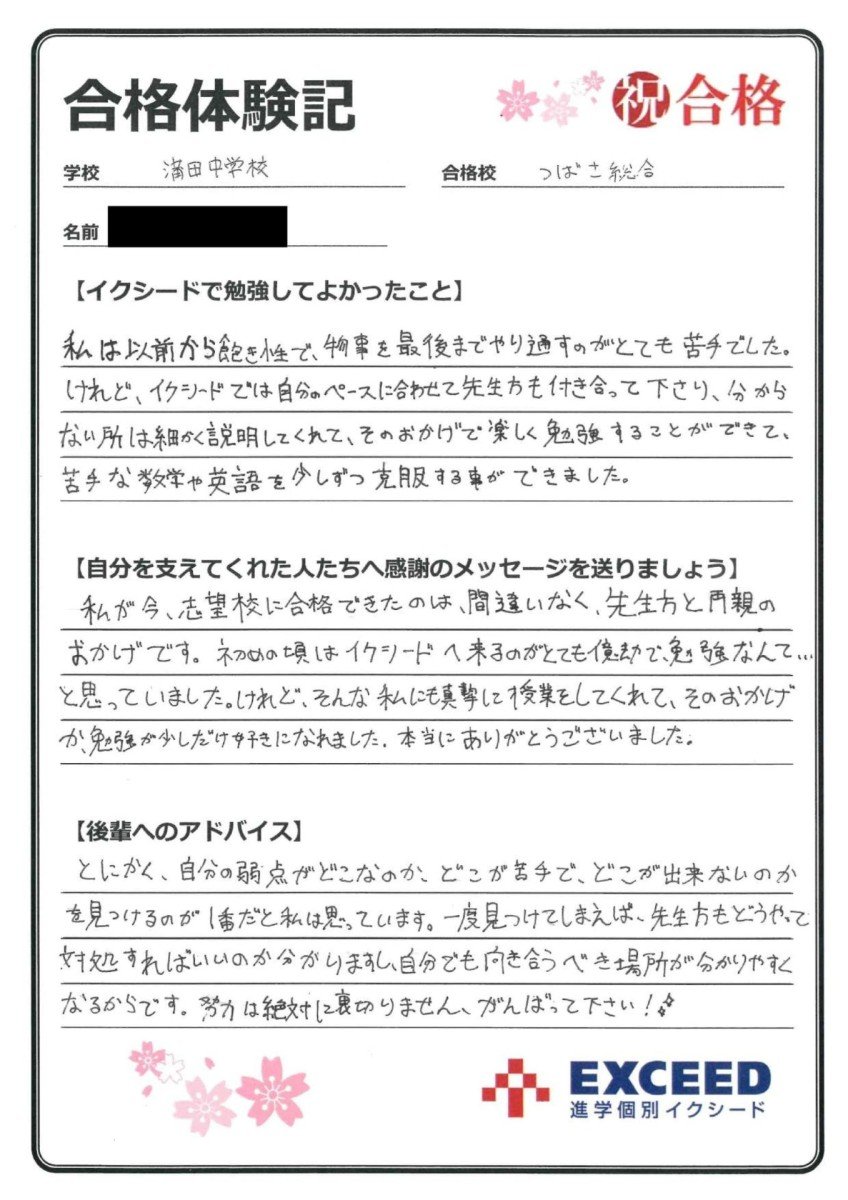 合格体験記
祝 合格
学校 蒲田中学校
合格校 つばさ総合
名前
【イクシードで勉強してよかったこと】
私は以前から飽き性で、物事を最後までやり通すのがとても苦手でした。
けれど、イクシードでは自分のペースに合わせて先生方も付き合って下さり、分から
ない所は細かく説明してくれて、そのおかげで楽しく勉強することができて、
苦手な数学や英語を少しずつ克服する事ができました。
【自分を支えてくれた人たちへ感謝のメッセージを送りましょう】
私が今、志望校に合格できたのは、間違いなく、先生方と両親の
おかげです。初めの頃はイクシードへ来るのがとても億劫で、勉強なんて…
と思っていました。けれど、そんな私にも真摯に授業をしてくれて、そのおかげ
か、勉強が少しだけ好きになれました。本当にありがとうございました。
【後輩へのアドバイス】
とにかく、自分の弱点がどこなのか、どこが苦手で、どこが出来ないのか
を見つけるのが1番だと私は思っています。一度見つけてしまえば、先生方もどうやって
対処すればいいのか分かりますし、自分でも向き合うべき場所が分かりやすく
なるからです。努力は絶対に裏切りません、がんばって下さい!
EXCEED
進学個別イクシード